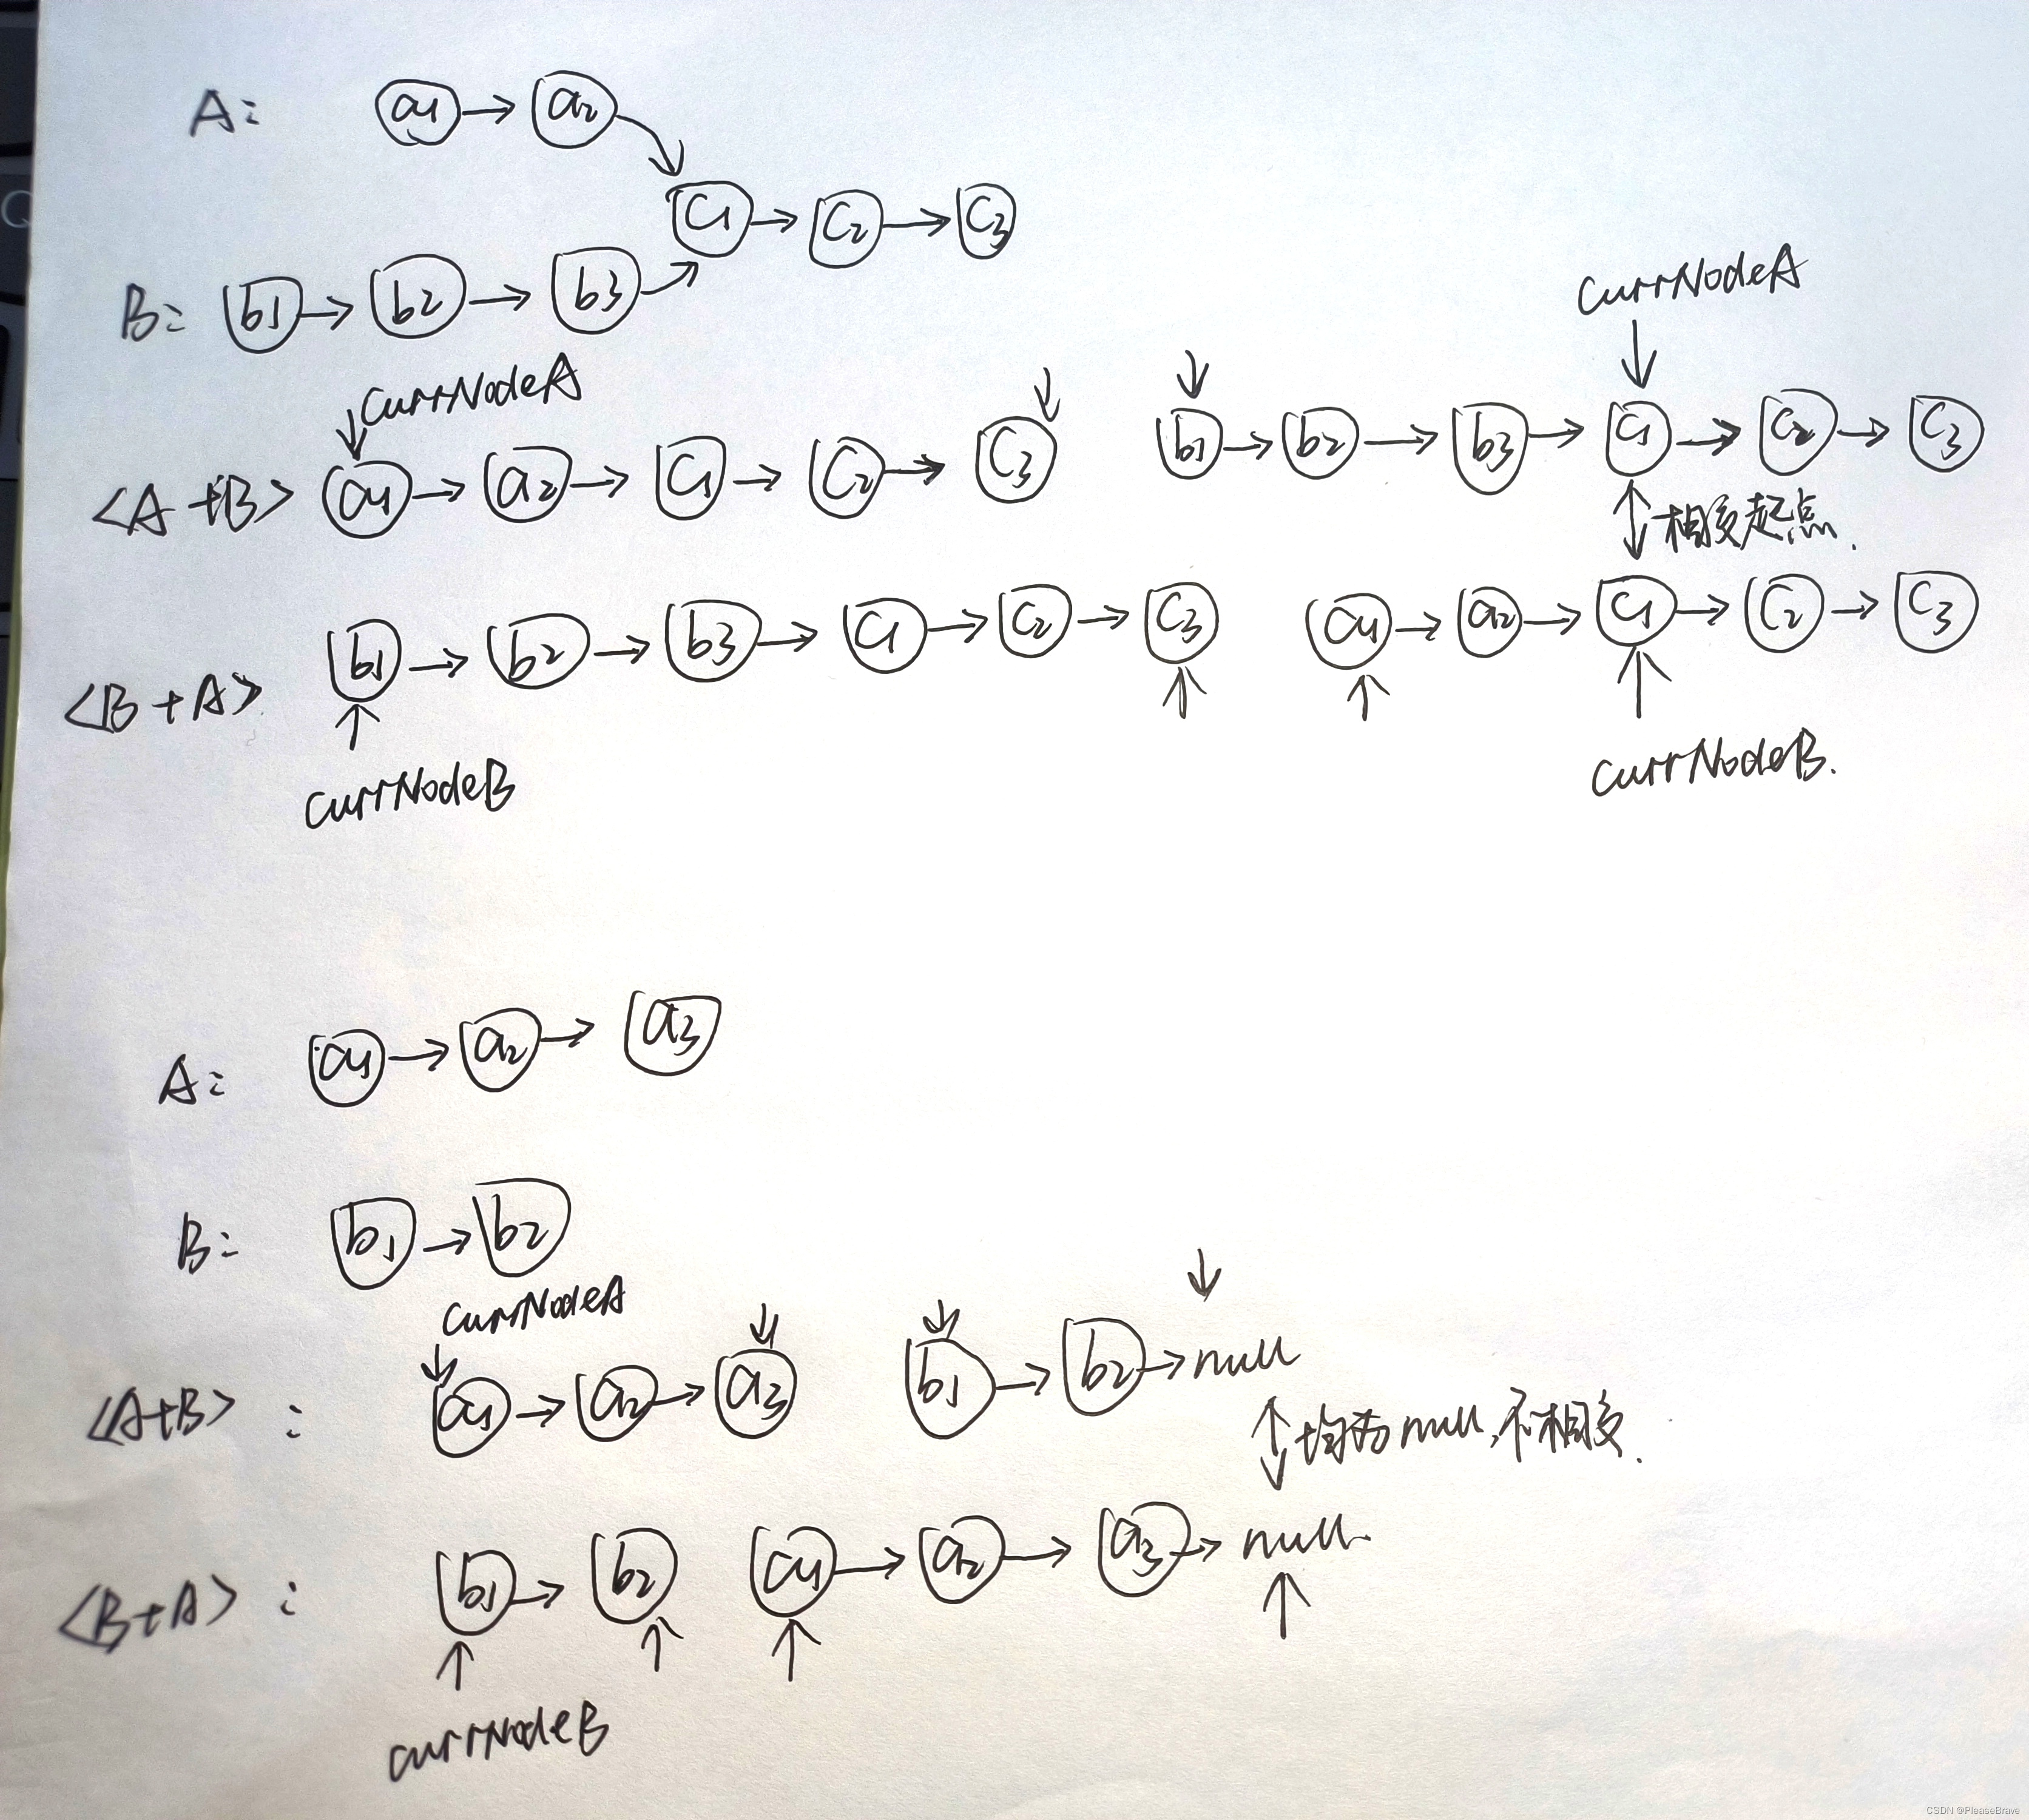 A: a1 → a2
c1 → c2 → c3
B: b1 → b2 → b3
currNodeA
currNodeA
<A+B> a1 → a2 → c1 → c2 → c3 b1 → b2 → b3 → c1 → c2 → c3
相交起点.
<B+A> b1 → b2 → b3 → c1 → c2 → c3 a1 → a2 → c1 → c2 → c3
currNodeB
currNodeB.
A: a1 → a2 → a3
B: b1 → b2
currNodeA
<A+B> : a1 → a2 → a3 b1 → b2 → null
均为null,不相交.
<B+A> : b1 → b2 a1 → a2 → a3 → null
currNodeB
CSDN @PleaseBrave